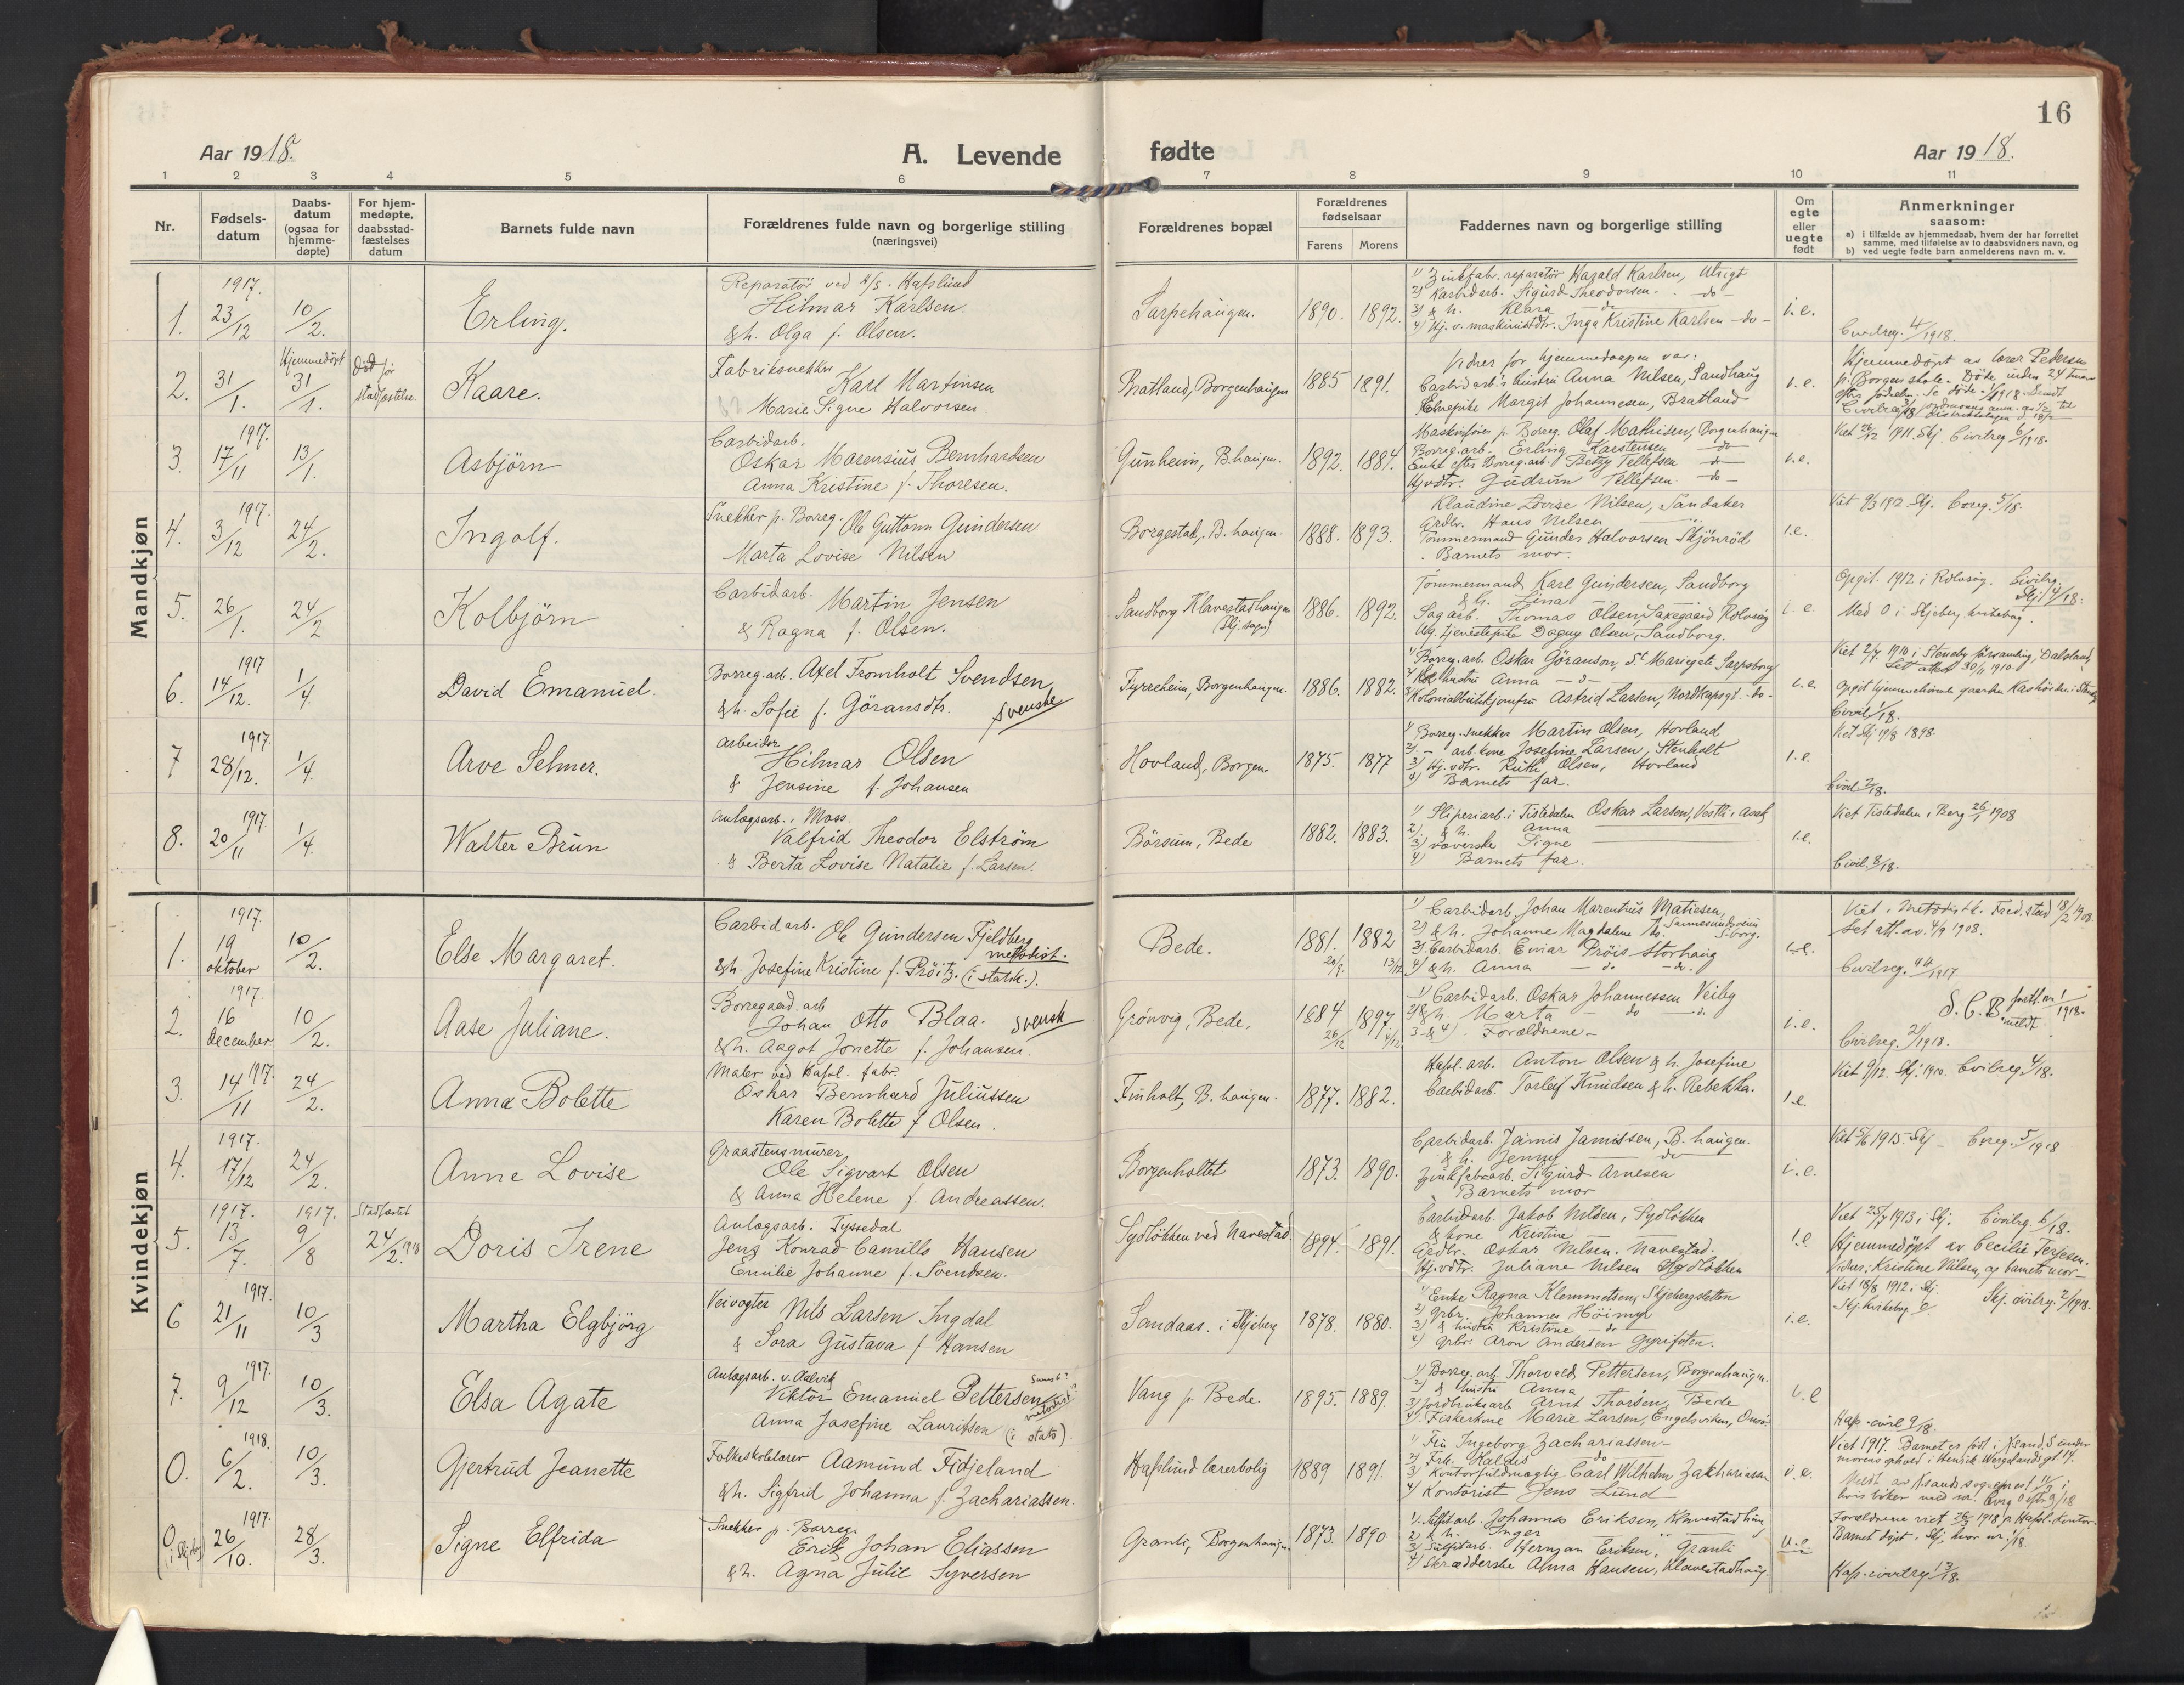 16
Aar 1918.
A. Levende fødte
Aar 1918.
1 2 3 4 5 6 7 8 9 10 11
Nr.
Fødsels-
datum
Daabs-
datum
(ogsaa for
hjemme-
døpte)
For hjem-
medøpte,
daabsstad-
fæstelses
datum
Barnets fulde navn
Forældrenes fulde navn og borgerlige stilling
(næringsvei)
Forældrenes bopæl
Forældrenes
fødselsaar
Farens Morens
Faddernes navn og borgerlige stilling
Om
egte
eller
uegte
født
Anmerkninger
saasom:
a) i tilfælde av hjemmedaab, hvem der har forrettet
samme, med tilføielse av to daabsvidners navn, og
b) ved uegte fødte barn anmelderens navn m. v.
Mandkjøn
1917.
1. 23/12 10/2. Erling.
Reparatör ved A/S. Hafslund
Hilmar Karlsen.
& h. Olga f. Olsen.
Sarpehaugen. 1890. 1892.
1) Zinkfab. reparatör Harald Karlsen, Utsigt
2) Karbidarb. Sigurd Theodorsen - do -
3) & h. Klara do
4) Hj. v. maskinistdtr. Inga Kristine Karlsen - do -
i.e.
Civilreg. 4/1918.
2. 31/1. Hjemmedöpt 31/1. Död før stadfæstelse. Kaare.
Fabriksnekker
Karl Martinsen
Marie Signe Halvorsen.
Bratland, Borgenhaugen 1885 1891.
Vidner for hjemmedaapen var:
Carbidarb.s hustru Anna Nilsen, Sandhaug
Margit Johannesen, Bratland
i.e.
Hjemmedöpt av lærer Pedersen
p. Borgen skole. Döde inden 24 timer
1917.
3. 17/11 13/1. Asbjörn
Carbidarb.
Oskar Marensius Bernhardsen
Anna Kristine f. Thoresen.
Gunheim, B.haugen. 1892. 1884.
Maskinfører p. Borreg. Olaf Mathisen, Borgenhaugen
Borreg.arb. Erling Karstensen do
Enke efter Borreg.arb. Betzy Tellefsen do
Hj.vdtr. Gudrun Tellefsen. - do -
i.e.
Viet 26/12 1911. Skj. Civilreg 6/1918.
1917.
4. 3/12 24/2. Ingolf.
Snekker p. Borreg. Ole Guttorm Gundersen
Marta Lovise Nilsen
Borgestad, B. haugen. 1888. 1893.
Klaudine Lovise Nilsen, Sandaker
Grdbr. Hans Nilsen
Tömmermand Gunder Halvorsen Skjönröd
Barnets mor.
i.e.
Viet 9/3 1912 Skj. Coreg. 5/18.
5. 26/1. 24/2 Kolbjörn
Carbidarb. Martin Jensen
& Ragna f. Olsen.
Sandborg Klavestadhaugen
(Skj. sogn). 1886. 1892.
Tömmermand Karl Gundersen, Sandborg
& h. Lina
Sagarb. Thomas Olsen, Saxegaard Rolvsöy
Ug. tjenestepike Dagny Olsen, Sandborg.
i.e.
Opgit. 1912 i Rolvsöy. Civilrg.
Skj. 4/18.
Med 0 i Skjeberg kirkebog.
1917
6. 14/12. 1/4. David Emanuel.
Borreg. arb. Axel Fromholt Svendsen
& h. Sofie f. Göransdtr. svenske
Fyrreheim, Borgenhaugen. 1886. 1882.
1) Borreg. arb. Oskar Göranson, St. Mariegate Sarpsborg
2) hustru Anna - do -
3) Kolonialbutikjomfru Astrid Larsen, Nordkapsgt. - do -
i.e.
Viet 2/7 1910 i Steneby församling, Dalsland
Set attest 30/11 1910.
Civil 1/18.
1917.
7 28/12. 1/4. Arve Selmer.
Arbeider
Hilmar Olsen
& Jensine f. Johansen
Hovland, Borgen. 1875. 1877
1) Borreg. snekker Martin Olsen, Hovland
2) - arb. kone Josefine Larsen, Stenholt
3) Hj. vdtr. Ruth Olsen, Hovland
4) Barnets far.
i.e.
Viet Skj 19/8 1898.
Civil 7/18.
1917
8. 20/11 1/4. Walter Brun
Anlægsarb. i Moss.
Valfrid Theodor Elström
& Berta Lovise Natalie f. Larsen.
Börsum, Bede 1882. 1883.
1) Sliperiarb. i Tistedalen Oskar Larsen, Vestli i Asak
2) & h. Anna
3) væverske Signe
4) Barnets far.
i.e.
Viet Tistedalen i Berg 26/1 1908
Civil. 8/18.
Kvindekjøn
1917.
1. 19 oktober 10/2. Else Margaret.
Carbidarb. Ole Gundersen Fjeldberg
metodist.
& h. Josefine Kristine f. Pröitz. (i statsk.).
Bede. 1881. 20/9. 1882 13/12
1) Carbidarb. Johan Marentius Matiesen,
2) & h. Johanne Magdalene M.
3) Carbidarb. Einar Pröis Storhaug
4) & h. Anna - do - do.
i.e.
Viet i Metodistk. Fred.stad 18/2 1908
Set att. av. 4/9 1908.
Civilreg. 44/1917.
1917.
2. 16 December 10/2. Aase Juliane.
Borregaard. arb
Johan Otto Blaa. svensk
& h. Aagot Jonette f. Johansen.
Grönvig, Bede. 1884 26/12 1897 4/12
1) Carbidarb. Oskar Johannessen Veiby
2) & h. Marta - do - do.
3-&4) Forældrene -
i.e.
Civilreg. 2/1918.
1917.
3. 14/11 24/2. Anna Bolette
Maler ved Hafsl. fabr.
Oskar Bernhard Juliussen
Karen Bolette f Olsen.
Finholt, B. haugen. 1877. 1882.
Hafsl. arb. Anton Olsen & h. Josefine
Carbidarb. Torleif Knudsen & h. Rebekka.
i.e.
Viet 9/12. Skj. 1910. Civilreg 4/18.
1917.
4. 17/12 24/2. Anne Lovise
Graastensmurer
Ole Sigvart Olsen
& Anna Helene f. Andreassen.
Borgenholtet 1873. 1890.
Carbidarb. Jamis Jamissen, B. haugen.
& h. Jenny do
Zinkfab.arb. Sigurd Arnesen
Barnets mor
i.e.
Viet 5/6 1915. Skj - Coreg. 5/1918
1917. 1917. Stadfæstet
5. 13/7. 9/8 24/2. 1918 Doris Irene
Anlægsarb. i Tyssedal
Jens Konrad Camillo Hansen
Emilie Johanne f. Svendsen.
Sydlökken ved Navestad. 1894. 1891.
Carbidarb. Jakob Nilsen, Sydlökken
& kone Kristine
Grdbr. Oskar Nilsen. Navestad.
Hj.vdtr. Juliane Nilsen Sydlökken
i.e.
Viet 25/7 1913 i Skj. Civilrg. 6/18.
Hjemmedöpt av Cecilie Terjesen.
Vidner: Kristine Nilsen, og barnets mor -
1917.
6 21/11 10/3 Martha Elgbjörg
Veivogter Nils Larsen Ingdal
& Sora Gustava f Hansen
Sandaas. i Skjeberg 1878. 1880.
1) Enke Ragna Klemmetsen, Skjebergsletten
2) Grbr. Johannes Höimyr
3) & hustru Kristine - do -
4) Grbr. Aron Andersen Gyrifoten.
i.e.
Viet 18/8 1912 i Skj.
Skj. kirkebog 0 Skj. civilreg. 2/1918.
1917.
7. 9/12 10/3. Elsa Agate
Anlægsarb. v. Aalvik
Viktor Emanuel Pettersen
Anna Josefine Lauritsen (i stats).
Vang p. Bede. 1895. 1889.
1) Borreg. arb. Thorvald Pettersen, Borgenhaugen.
2) & hustru Anna
3) Jordbruksarb Arnt Thorsen, Bede
4) Fiskerkone Marie Larsen, Engelsviken, Onsö.
i.e
Hafs. civil 9/18.
1918.
0. 6/2. 10/3. Gjertrud Jeanette
Folkeskolelærer Aamund Fidjeland
& h. Sigfrid Johanna f. Zachariassen.
Hafslund lærerbolig 1889 1891.
1) Fru Ingeborg Zachariassen -
2) Frk. Valdis do
3) Kontorfuldmægtig Carl Wilhelm Zachariassen
4) Kontorist Jens Lund -
i.e.
Viet 1917. Barnet er født i Kr.sand. S under
morens ophold i Henrik Wergelandsgt 14.
1917.
0. (i Skjeberg) 26/10. 28/3. Signe Elfrida
Snekker p. Borreg.
Erik Johan Eliassen
& h. Agna Julie Syversen
Granli, Borgenhaugen 1873. 1890
1. Sulfitarb. Johannes Eriksen, Klavestadhaug
2) & h. Inger
3) Sulfitarb. Herman Eriksen, Granli
4) Skrædderske Alma Hansen, Klavestadhaug.
u.e.
Forældrene viet 26/3 1918 p. Hafsl. kontor.
Barnet døpt i Skj. hvor nr. 1/18.
Hafs. civilreg. 13/18.